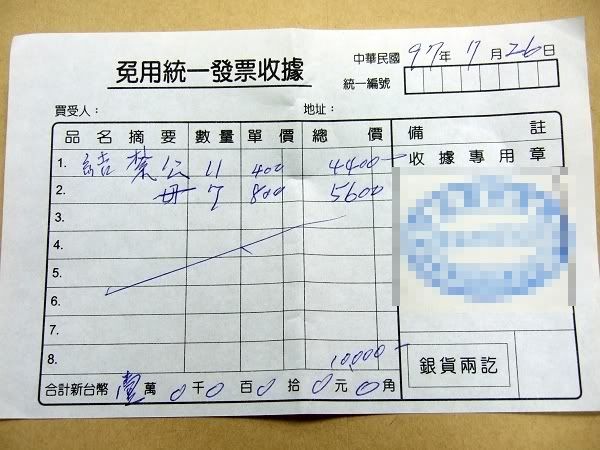 免用統一發票收據
中華民國 97年 7月 26日
統一編號
買受人： 地址：
品名摘要 數量 單價 總價 備註
1. 結紮 公 11 400 4400—
收據專用章
2. 母 7 800 5600
3.
4.
5.
6.
7.
8. 10,000—
銀貨兩訖
合計新台幣 壹萬 0千 0百 0拾 0元 0角